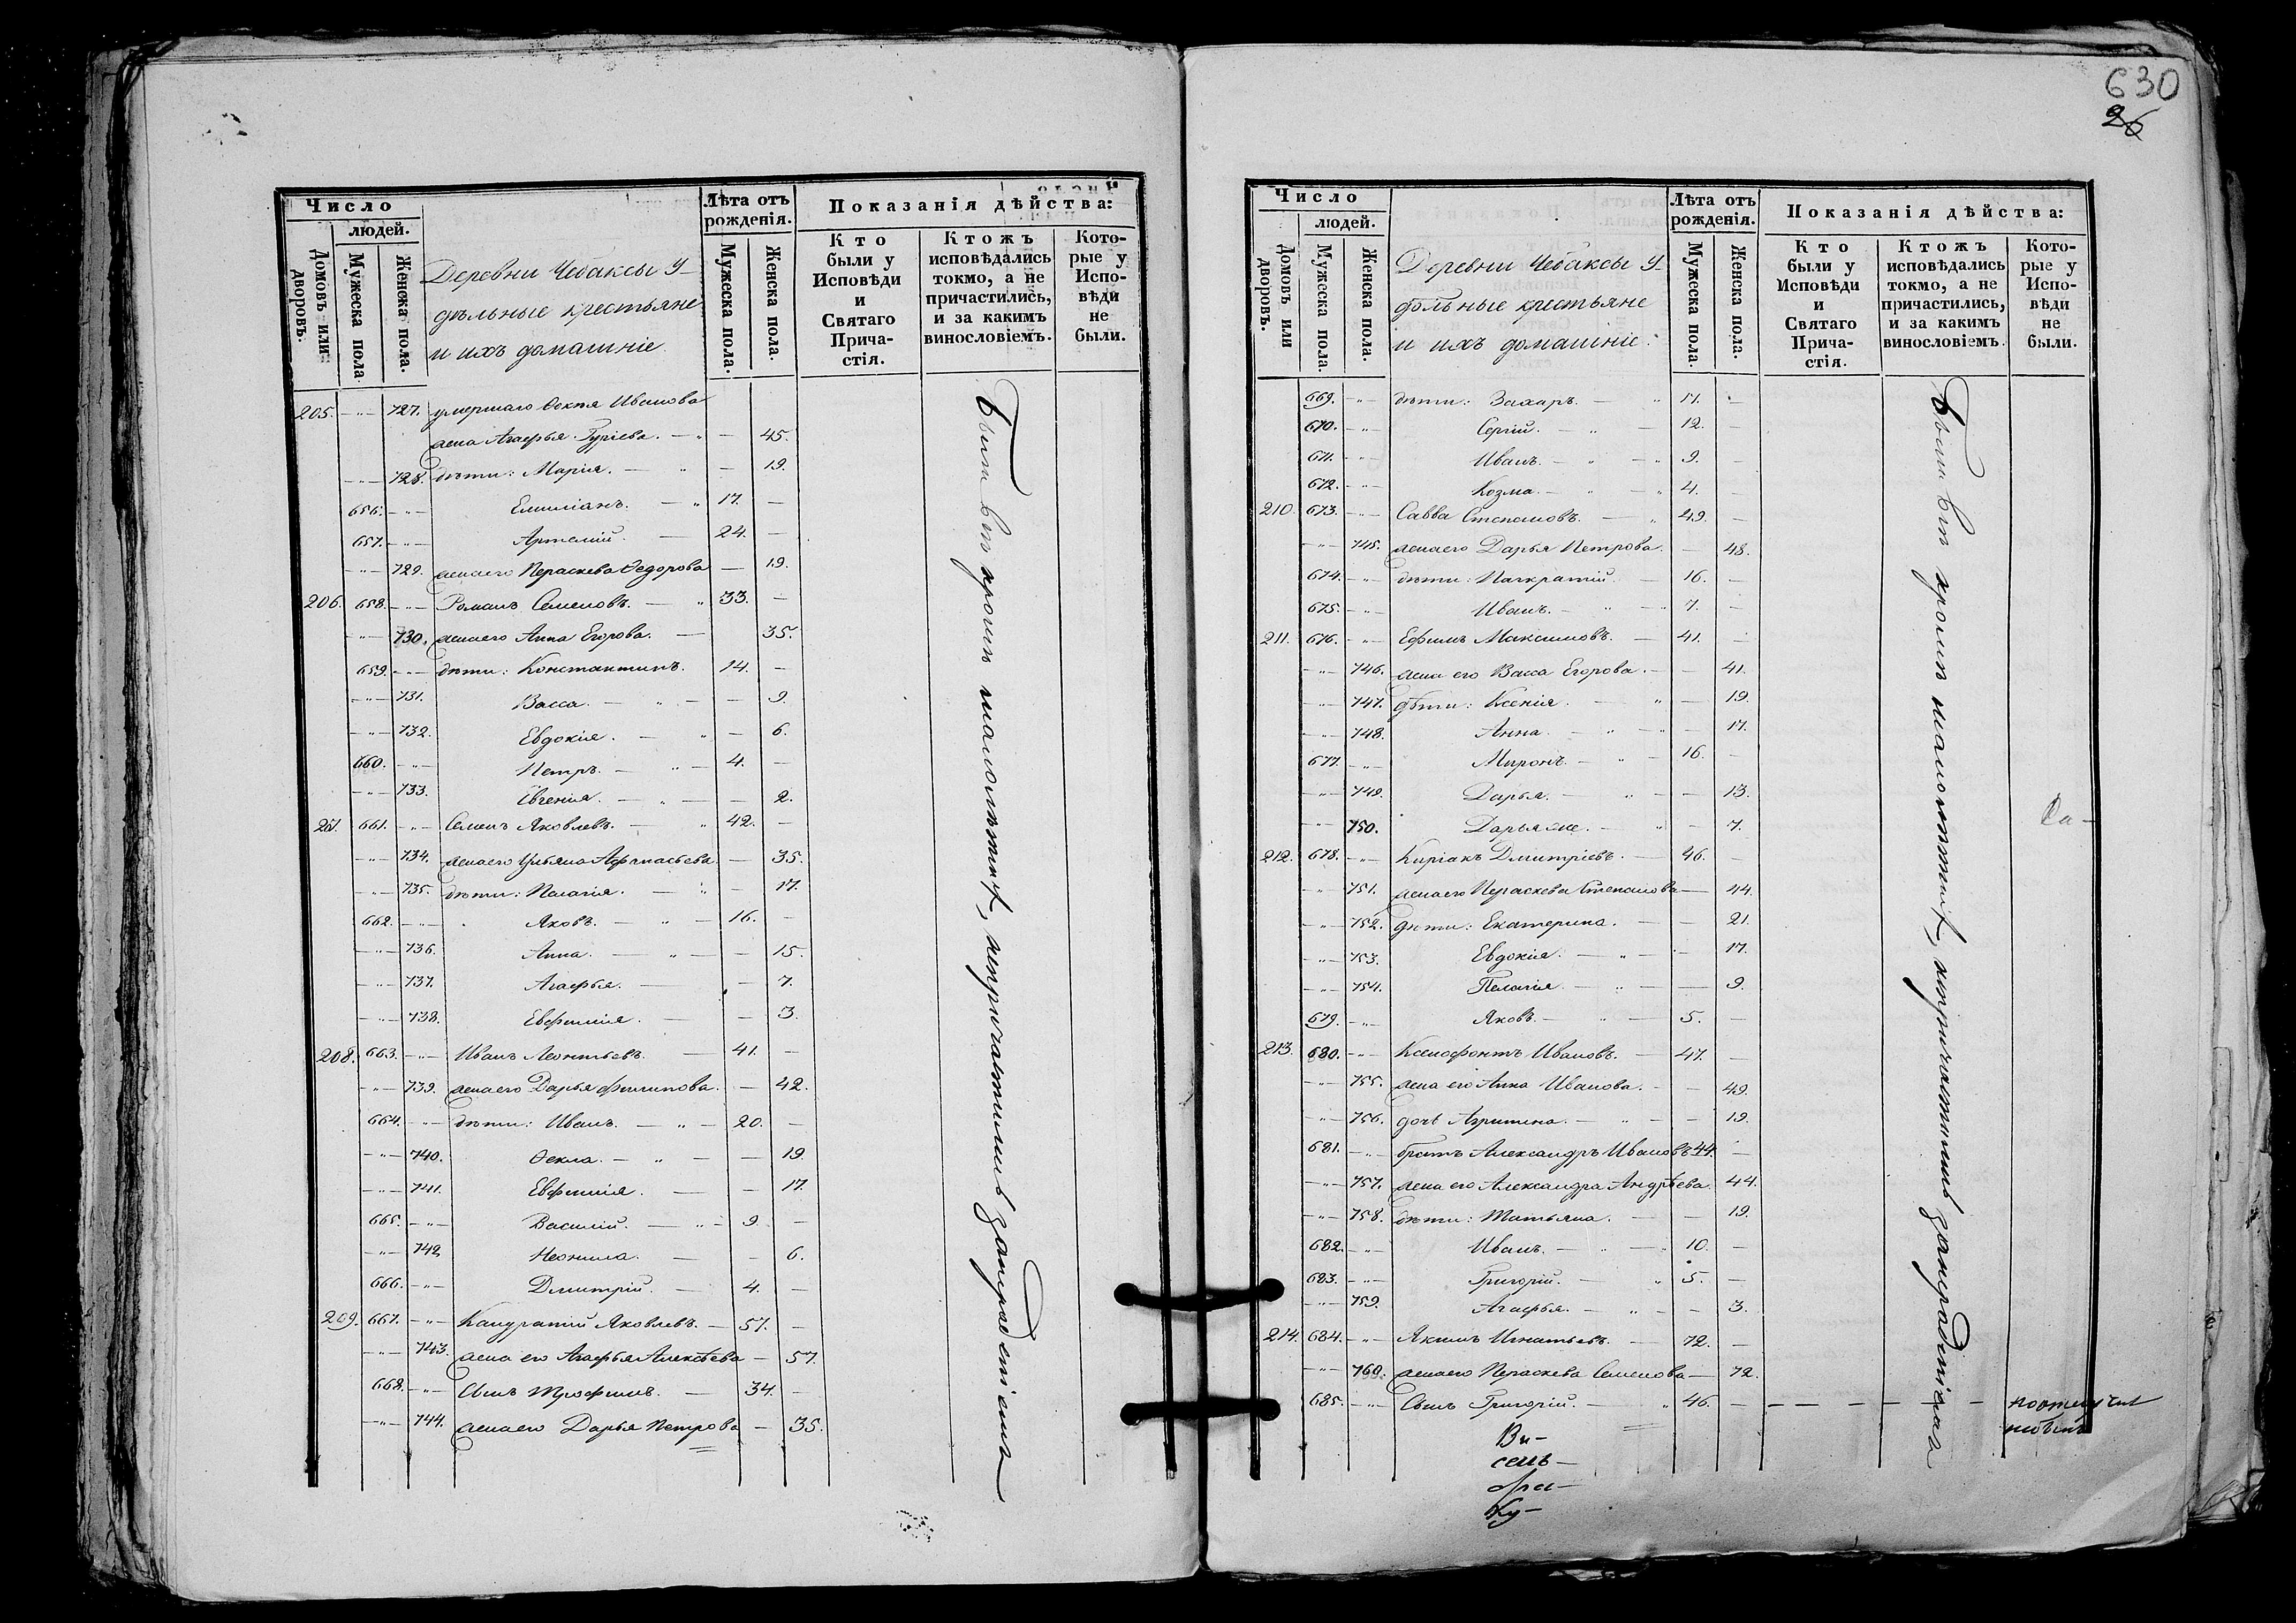 Число
людей.
Домовъ или дворовъ.
Мужеска пола
Женска пола.
Деревни Чебаксы У-
дѣльные крестьяне
и ихъ домашніе.
Лѣта отъ
рожденія.
Мужеска пола.
Женска пола.
Показанія дѣйства:
Кто
были у
Исповѣди
и
Святаго
Прича-
стія.
Ктожъ
исповѣдались
токмо, а не
причастились,
и за какимъ
винословіемъ.
Кото-
рые у
Испо-
вѣди
не
были.
205. -"- 727. умершаго Ѳокея Иванова
жена Агафья Гуріева. — " — 45.
-"- 728. дѣти: Марія. — " — 19.
656. -"- Емиліанъ. — " 17. —
657. -"- Артемій. — 24. —
-"- 729. жена его Пераскева Ѳедорова — 19.
206. 658. -"- Романъ Семеновъ. — " 33. —
-"- 730. жена его Анна Егорова. — 35.
659. -"- дѣти: Константинъ. 14. —
-"- 731. Васса. — " — — 9.
-"- 732. Евдокія. — " — 6.
660. -"- Петръ. — " — 4. —
-"- 733. Евгенія. — " — — 2.
661. -"- Семенъ Яковлевъ. — " 42. —
-"- 734. жена его Ульяна Афанасьева — 35.
-"- 735. дѣти: Палагія. — " — 17.
662. -"- Яковъ. — " — 16. —
-"- 736. Анна. — " — — 15.
-"- 737. Агафья. — — 7.
-"- 738. Евфимія. — — 3.
208. 663. -"- Иванъ Леонтьевъ. — 41. —
-"- 739. жена его Дарья Филипова. — 42.
664. -"- дѣти: Иванъ. — " — 20. —
-"- 740. Ѳекла. — " — — 19.
-"- 741. Евфимія. — — 17.
665. -"- Василій. — " — 9. —
-"- 742. Неонила. — — 6.
666. -"- Дмитрій. — 4. —
209. 667. -"- Кандратій Яковлевъ. — 57. —
-"- 743. жена его Агафья Алексѣева — 57.
668. -"- Сынъ Трофимъ. — 34. —
-"- 744. жена его Дарья Петрова — 35.
630
26
Число
людей.
Домовъ или дворовъ.
Мужеска пола.
Женска пола.
Деревни Чебаксы У-
дѣльные крестьяне
и ихъ домашніе.
Лѣта отъ
рожденія.
Мужеска пола.
Женска пола.
Показанія дѣйства:
Кто
были у
Исповѣди
и
Святаго
Прича-
стія.
Ктожъ
исповѣдались
токмо, а не
причастились,
и за какимъ
винословіемъ.
Кото-
рые у
Испо-
вѣди
не
были.
669. -"- дѣти: Захаръ. — " 17. —
670. -"- Сергій. — " — 12. —
671. -"- Иванъ. — " — 9. —
672. -"- Козма. — " — 4. —
210 673. -"- Савва Степановъ. — " 49. —
-"- 745. жена его Дарья Петрова. — 48.
674. -"- дѣти: Панкратій. — 16. —
675. -"- Иванъ. — " — 7. —
211. 676. -"- Ефимъ Максимовъ. — 41. —
-"- 746. жена его Васса Егорова. — — 41.
-"- 747. дѣти: Ксенія. — " — 19.
-"- 748. Анна. — " — — 17.
677. -"- Миронъ. — " — 16. —
-"- 749. Дарья. — " — — 13.
-"- 750. Дарья же. — " — 7.
212. 678. -"- Киріакъ Дмитріевъ. — 46. —
-"- 751. жена его Пераскева Степанова — 44.
-"- 752. дѣти: Екатерина. — — 21.
-"- 753. Евдокія. — " — — 17.
-"- 754. Палагія. — " — — 9.
679. -"- Яковъ. — " — 5. —
213. 680. -"- Ксенофонтъ Ивановъ. — 47. —
-"- 755. жена его Анна Иванова. — — 49.
-"- 756. дочь Агрипина. — " — — 19.
681. -"- братъ Александръ Ивановъ 44. —
-"- 757. жена его Александра Андрѣева. 44.
-"- 758. дѣти: Татьяна. — — 19.
682. -"- Иванъ. — " — 10. —
683. -"- Григорій. — " 5. —
-"- 759. Агафья. — " — — 3.
214. 684. -"- Якимъ Игнатьевъ. — 72. —
-"- 760. жена его Пераскева Семенова — 72.
685. -"- Сынъ Григорій. — " 46. — — — — — — —